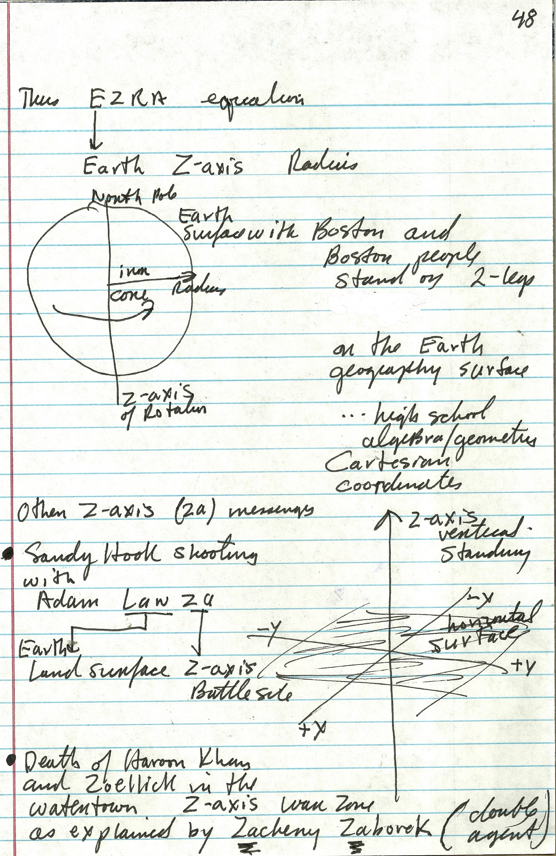 48
Thus EZRA equation
Earth Z-axis Radius
North Pole
Earth
Surface with Boston and
Boston people
stand on 2-legs
iron
core
Radius
Z-axis
of Rotation
on the Earth
geography surface
... high school
algebra/geometry
Cartesian
coordinates
Other Z-axis (za) messages
Z-axis
vertical
Standing
• Sandy Hook shooting
with
Adam Law za
-x
horizontal
surface
-y
+y
Earth
Land surface Z-axis
Battle site
+x
• Death of Haroon Khan
and Zoellick in the
watertown Z-axis war zone
as explained by Zacheny Zaborek (double
agent)